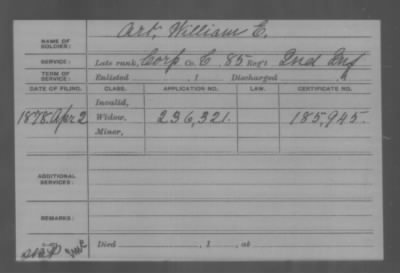 NAME OF SOLDIER: Art, William E.
SERVICE: Late rank, Corp Co. C, 85 Reg't Ind Inf
TERM OF SERVICE: Enlisted , 1 Discharged , 1
DATE OF FILING. CLASS. APPLICATION NO. LAW. CERTIFICATE NO.
Invalid,
1878. Apr 2 Widow, 236,321. 185,945.
Minor,
ADDITIONAL SERVICES:
REMARKS:
Died , 1 , at